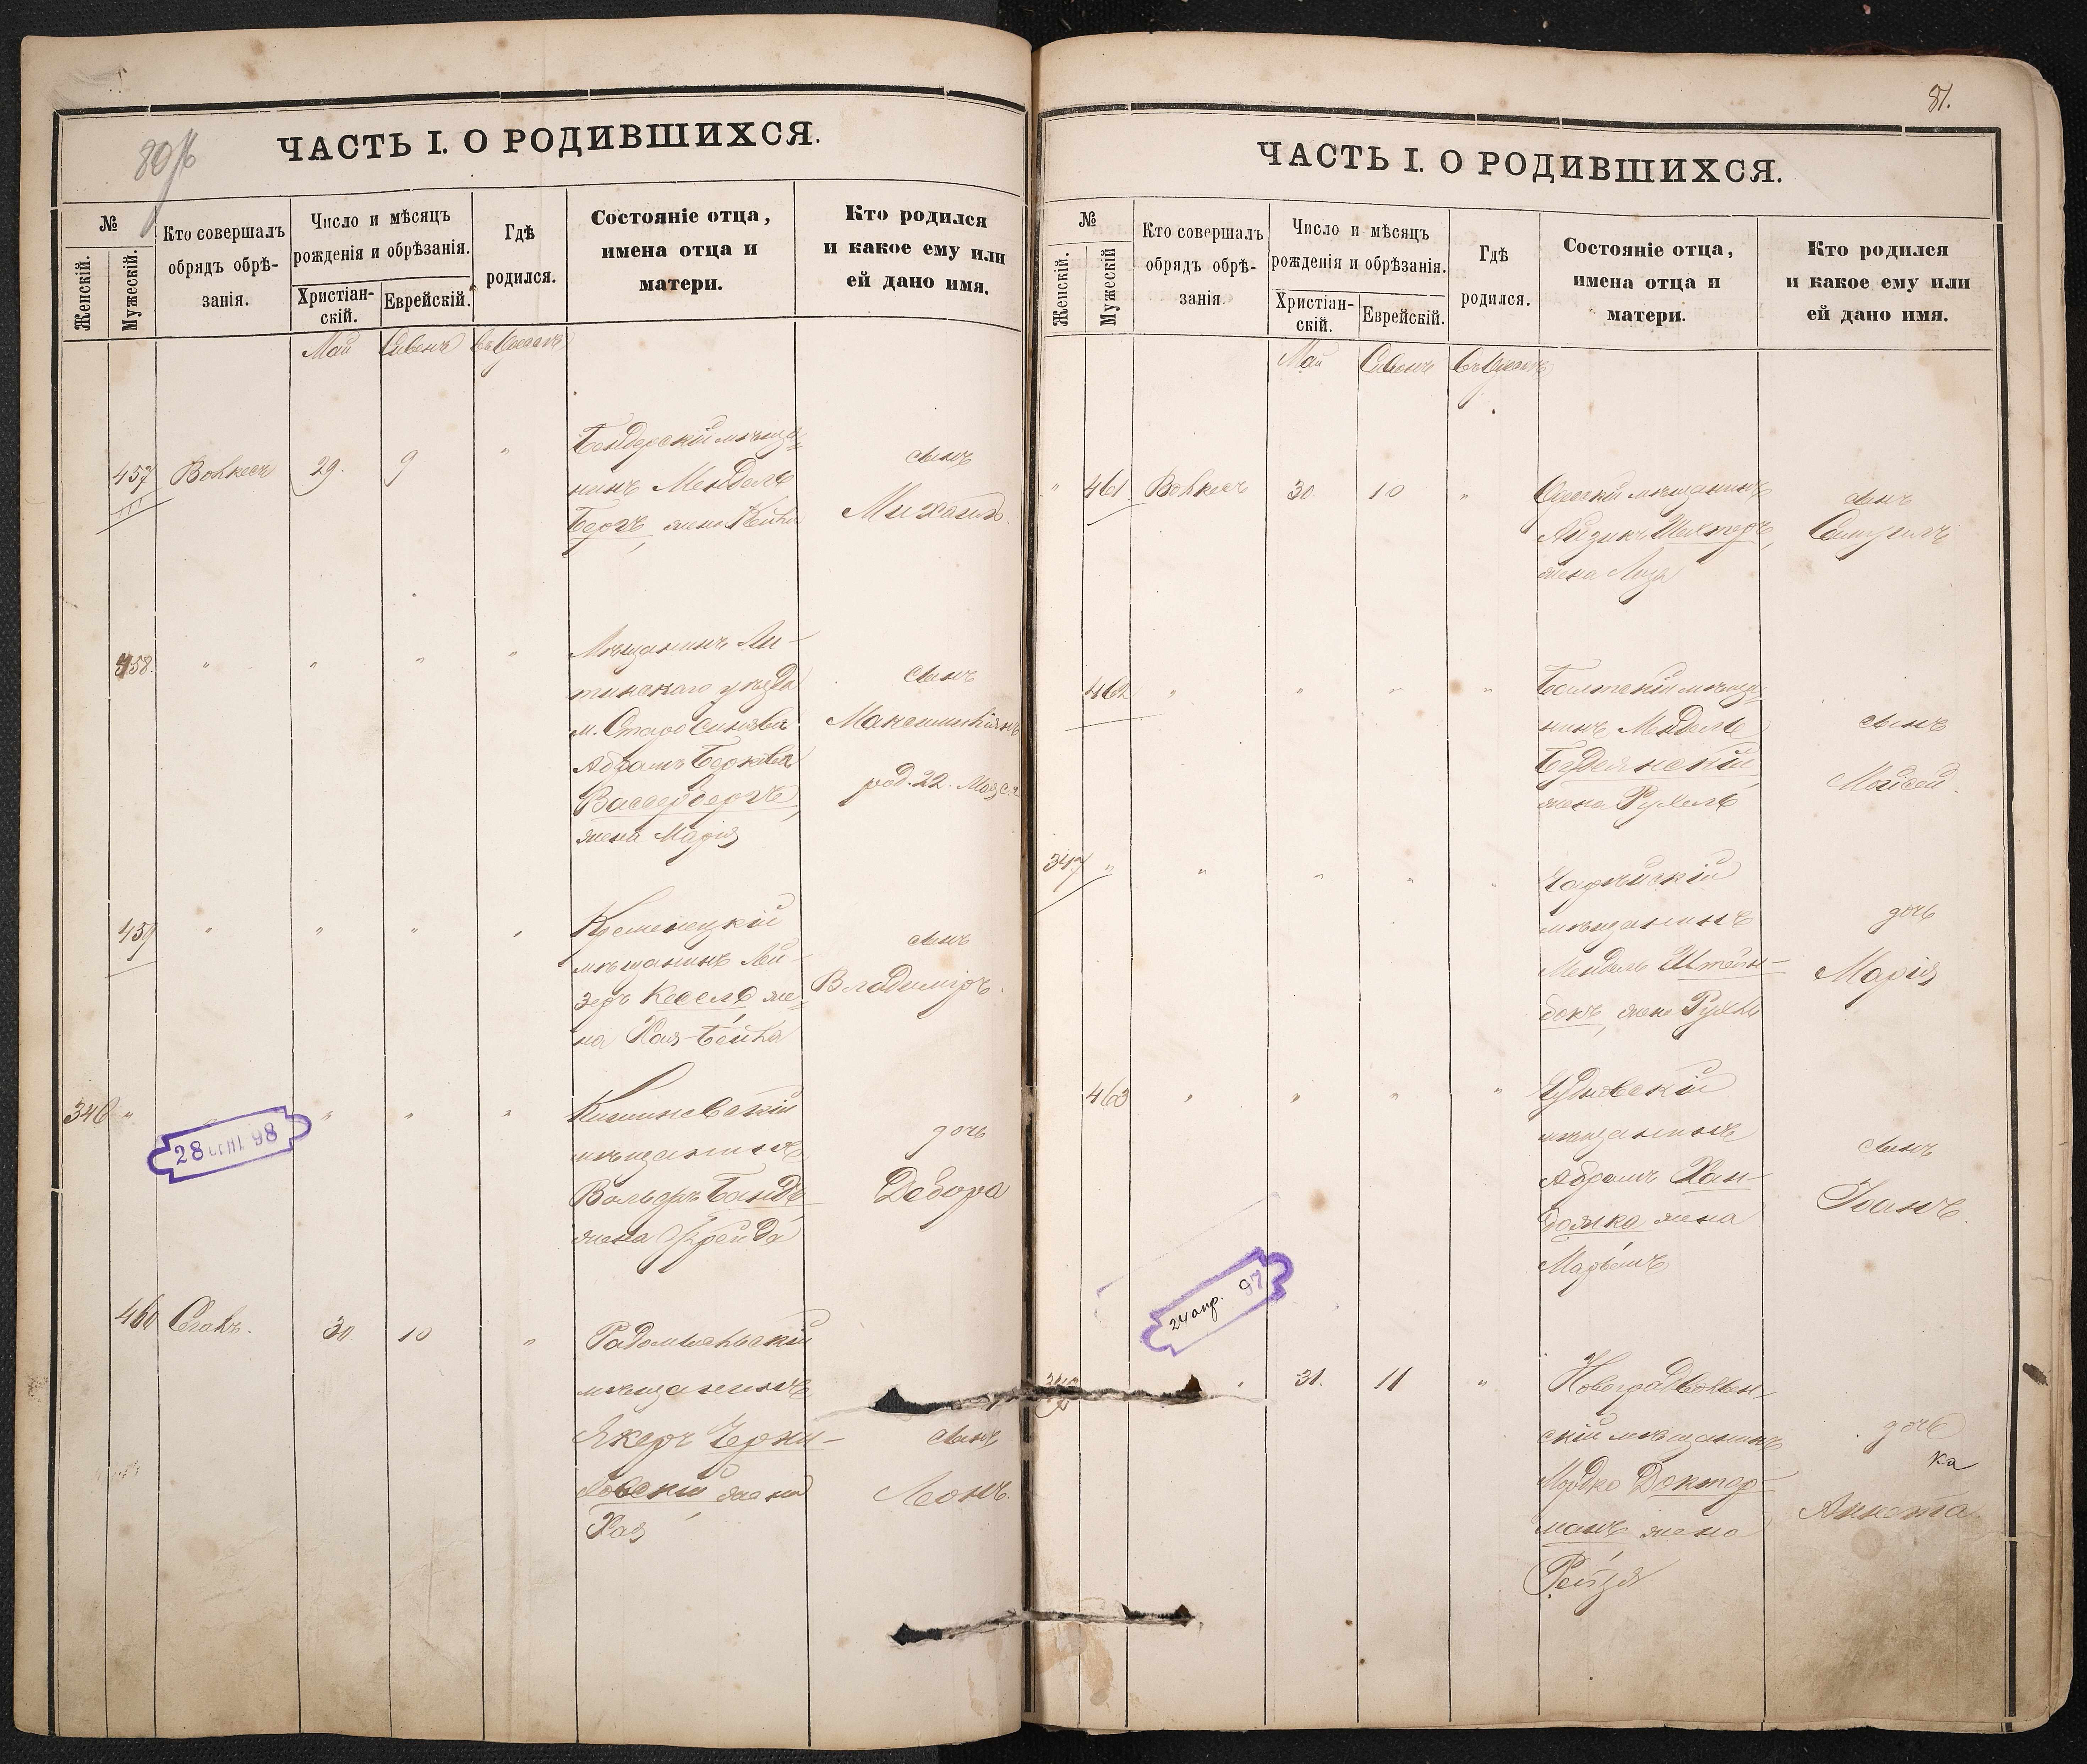 ЧАСТЬ I. О РОДИВШИХСЯ.
№
Женскій.
Мужескій.
Кто совершалъ
обрядъ обрѣ-
занія.
Число и мѣсяцъ
рожденія и обрѣзанія.
Христіан-
скій.
Еврейскій.
Гдѣ
родился.
Состояніе отца,
имена отца и
матери.
Кто родился
и какое ему или
ей дано имя.
Май Сивонъ
457 29. 9
Бендерскій мѣща-
нинъ Мендель
Бергъ, жена Бейла
сынъ
Михаилъ.
458. " " " "
Мѣщанинъ Ли-
тинскаго уѣзда
м. Старо Синява
Абрамъ Берковъ
Вассербергъ,
жена Марія
сынъ
Максимиліанъ
род. 22. Мая с. г.
459 " " " "
Кременецкій
мѣщанинъ Лей-
зеръ Кесель же-
на Хая-Бейла
сынъ
Владиміръ.
346 " " " "
28 98
Кишиневскій
мѣщанинъ
Вольфъ Бандъ
жена Фрейда
дочь
Дебора
460 Сегалъ. 30 10 "
Радомысльскій
мѣщанинъ
Якеръ Черни-
ховскій жена
Хая
сынъ
Леонъ.
81.
ЧАСТЬ I. О РОДИВШИХСЯ.
№
Женскій.
Мужескій
Кто совершалъ
обрядъ обрѣ-
занія.
Число и мѣсяцъ
рожденія и обрѣзанія.
Христіан-
скій.
Еврейскій.
Гдѣ
родился.
Состояніе отца,
имена отца и
матери.
Кто родился
и какое ему или
ей дано имя.
Май Сивонъ
" 461 30 10 "
Одесскій мѣщанинъ
Айзикъ Шехтеръ,
жена Лиза
сынъ
Самуилъ
462 " " " "
Балтскій мѣща-
нинъ Мендель
Будянскій,
жена Рухель
сынъ
Мойсей.
347 " " " " "
мѣщанинъ
Мендель Штейн-
бокъ, жена Рухль
дочь
Марія
463 " " " "
Чудновскій
мѣщанинъ
Абрамъ Хан-
дожка жена
Марьемъ
сынъ
Іванъ.
24 апр. 97
31. 11 "
Новоградволын-
скій мѣщанинъ
Мордко Доктор-
манъ жена
Рейзя
дочь
ка
Аннета